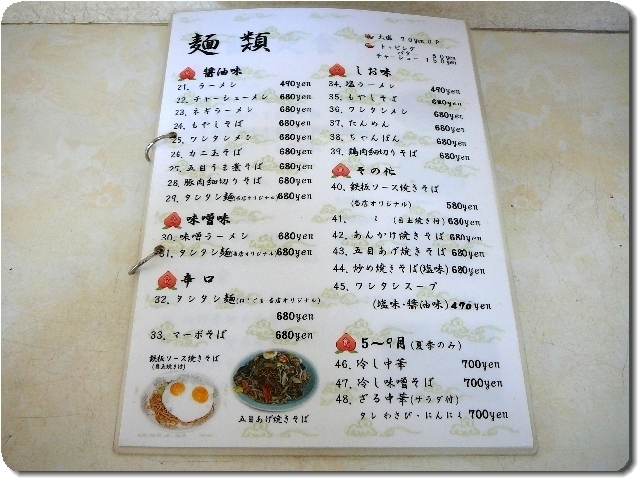 麺類
大盛 70yen UP
トッピング
バター 50yen
チャーシュー 150yen
醤油味
21. ラーメン 490yen
22. チャーシューメン 680yen
23. ネギラーメン 680yen
24. もやしそば 680yen
25. ワンタンメン 680yen
26. カニ玉そば 680yen
27. 五目うま煮そば 680yen
28. 豚肉細切りそば 680yen
29. タンタン麺(当店オリジナル) 680yen
味噌味
30. 味噌ラーメン 680yen
31. タンタン麺(当店オリジナル) 680yen
辛口
32. タンタン麺(ねりごま 当店オリジナル)
680yen
33. マーボそば 680yen
鉄板ソース焼きそば
(目玉焼き付)
五目あげ焼きそば
しお味
34. 塩ラーメン 490yen
35. もやしそば 680yen
36. ワンタンメン 680yen
37. たんめん 680yen
38. ちゃんぽん 680yen
39. 鶏肉細切りそば 680yen
その他
40. 鉄板ソース焼きそば
(当店オリジナル) 580yen
41. 〃 (目玉焼き付) 630yen
42. あんかけ焼きそば 680yen
43. 五目あげ焼きそば 680yen
44. 炒め焼きそば(塩味) 680yen
45. ワンタンスープ
(塩味・醤油味) 470yen
5〜9月(夏季のみ)
46. 冷し中華 700yen
47. 冷し味噌そば 700yen
48. ざる中華(サラダ付)
タレ わさび・にんにく 700yen